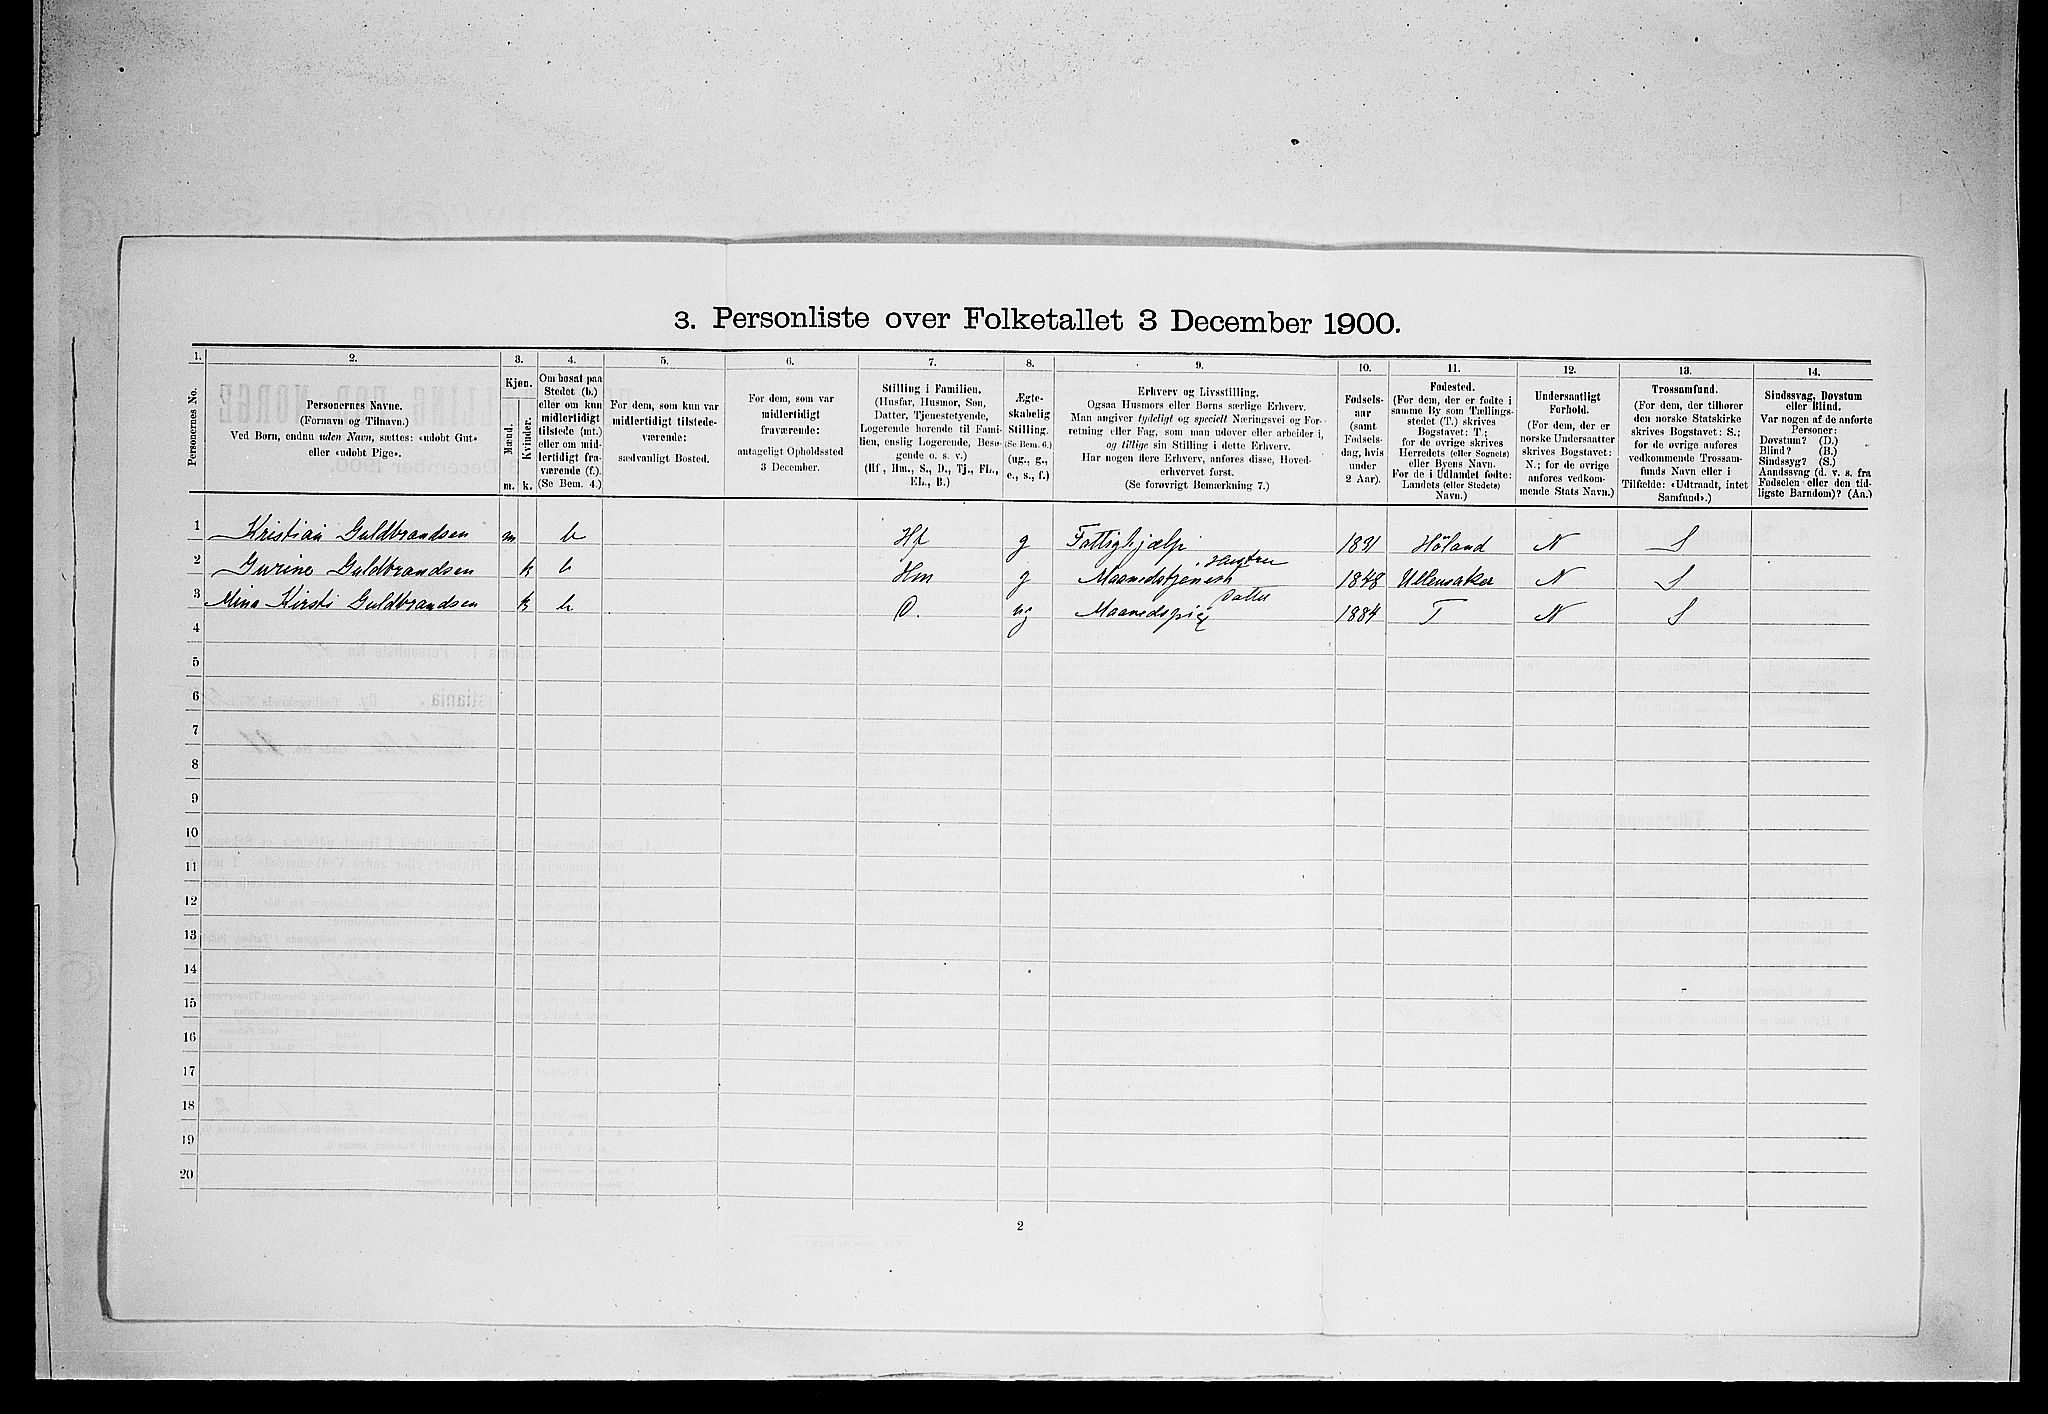 3. Personliste over Folketallet 3 December 1900.
1. 2. 3. 4. 5. 6. 7. 8. 9. 10. 11. 12. 13. 14.
Personernes No.
Personernes Navne.
(Fornavn og Tilnavn.)
Ved Børn, endnu uden Navn, sættes: «udøbt Gut»
eller «udøbt Pige».
Kjøn.
Mænd.
Kvinder.
m. k.
Om bosat paa
Stedet (b.)
eller om kun
midlertidigt
tilstede (mt.)
eller om mid-
lertidigt fra-
værende (f.).
(Se Bem. 4.)
For dem, som kun var
midlertidigt tilstede-
værende:
sædvanligt Bosted.
For dem, som var
midlertidigt
fraværende:
antageligt Opholdssted
3 December.
Stilling i Familien.
(Husfar, Husmor, Søn,
Datter, Tjenestetyende,
Logerende hørende til Fami-
lien, enslig Logerende, Besø-
gende o. s. v.)
(Hf., Hm., S., D., Tj., FL.,
EL., B.)
Ægte-
skabelig
Stilling.
(Se Bem. 6.)
(ug., g.,
e., s., f.)
Erhverv og Livsstilling.
Ogsaa Husmors eller Børns særlige Erhverv.
Man angiver tydeligt og specielt Næringsvei og For-
retning eller Fag, som man udøver eller arbeider i,
og tillige sin Stilling i dette Erhverv.
Har nogen flere Erhverv, anføres disse, Hoved-
erhvervet først.
(Se forøvrigt Bemærkning 7.)
Fødsels-
aar
(samt
Fødsels-
dag, hvis
under
2 Aar).
Fødested.
(For dem, der er fødte i
samme By som Tællings-
stedet (T.) skrives
Bogstavet: T.;
for de øvrige skrives
Herredets (eller Sognets)
eller Byens Navn.
For de i Udlandet fødte:
Landets (eller Stedets)
Navn.)
Undersaatligt
Forhold.
(For dem, der er
norske Undersaatter
skrives Bogstavet:
N.; for de øvrige
anføres vedkom-
mende Stats Navn.)
Trossamfund.
(For dem, der tilhører
den norske Statskirke
skrives Bogstavet: S.;
for de øvrige anføres
vedkommende Trossam-
funds Navn eller i
Tilfælde: «Udtraadt, intet
Samfund».)
Sindssvag, Døvstum
eller Blind.
Var nogen af de anførte
Personer:
Døvstum? (D.)
Blind? (B.)
Sindssyg? (S.)
Aandssvag (d. v. s. fra
Fødselen eller den tid-
ligste Barndom)? (Aa.)
1 Kristian Guldbrandsen m b Hf g Fattighjælp 1831 Høland N S
2 Gurine Guldbrandsen k b Hm g Maanedstjenest Hustru 1848 Ullensaker N S
3 Mina Kirsti Guldbrandsen k b D. ug Maanedspige Datter 1884 T N S
4
5
6
7
8
9
10
11
12
13
14
15
16
17
18
19
20
2